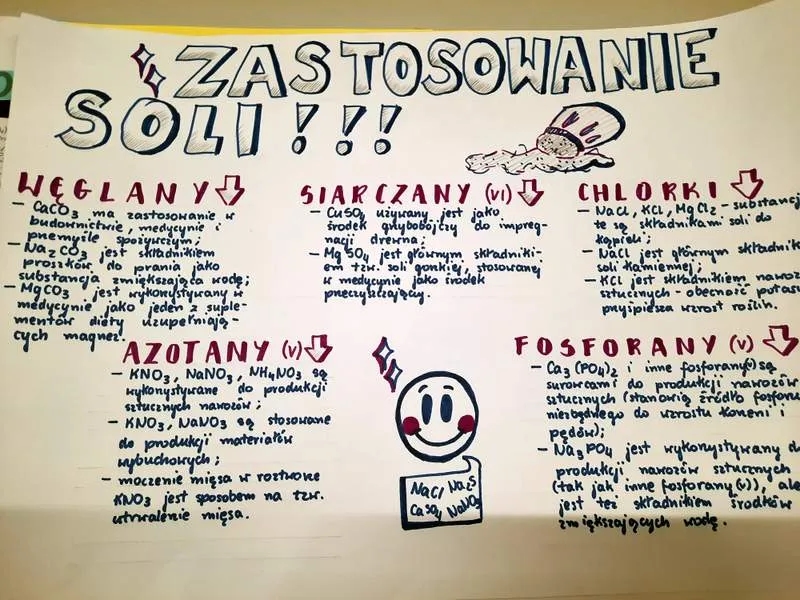 ZASTOSOWANIE
SOLI!!!
WĘGLANY
- CaCO3 ma zastosowanie w
budownictwie, medycynie i
przemyśle spożywczym;
- Na2CO3 jest składnikiem
proszków do prania jako
substancja zmiększająca wodę;
- MgCO3 jest wykorzystywany w
medycynie jako jeden z suple-
mentów diety uzupełniają-
cych magnez.
SIARCZANY (VI)
- CuSO4 używany jest jako
środek grzybobójczy do impreg-
nacji drewna;
- MgSO4 jest głównym składniki-
em tzw. soli gorzkiej, stosowanej
w medycynie jako środek
przeczyszczający.
CHLORKI
- NaCl, KCl, MgCl2 - substancj
te są składnikami soli do
kąpieli;
- NaCl jest głównym składnik
soli kamiennej;
- KCl jest składnikiem nawoz
sztucznych - obecność potas
przyśpiesza wzrost roślin.
AZOTANY (V)
- KNO3, NaNO3, NH4NO3 są
wykorzystywane do produkcji
sztucznych nawozów;
- KNO3, NaNO3 są stosowane
do produkcji materiałów
wybuchowych;
- moczenie mięsa w roztworze
KNO3 jest sposobem na tzw.
utrwalenie mięsa.
NaCl Na2S
CaSO4 NaNO3
FOSFORANY (V)
- Ca3(PO4)2 i inne fosforany(V) są
surowcami do produkcji nawozów
sztucznych (stanowią źródło fosforu
niezbędnego do wzrostu korzeni i
pędów);
- Na3PO4 jest wykorzystywany d
produkcji nawozów sztucznych
(tak jak inne fosforany(V)), ale
jest też składnikiem środków
zmiększających wodę.